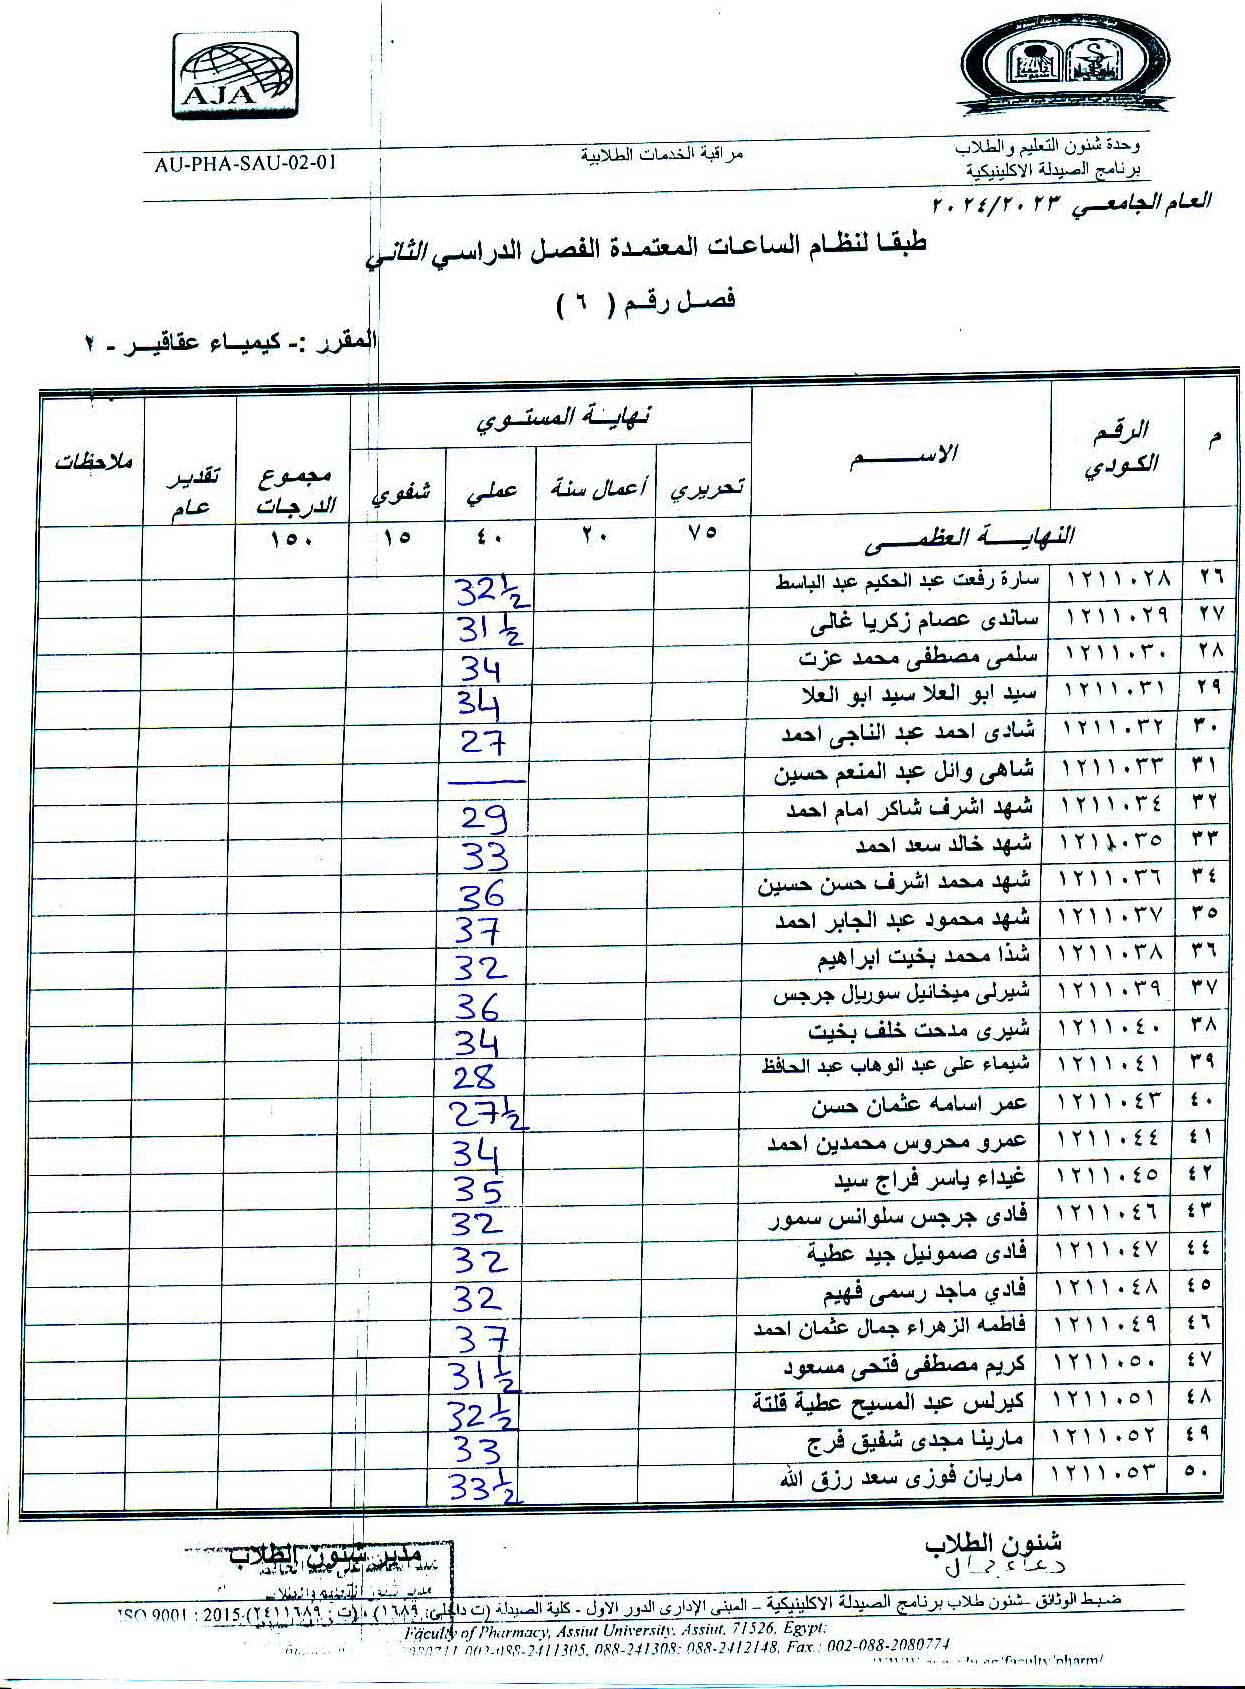 AJA
وحدة شئون التعليم والطلاب
برنامج الصيدلة الاكلينيكية
مراقبة الخدمات الطلابية
AU-PHA-SAU-02-01
العام الجامعي ٢٠٢٤/٢٠٢٣
طبقا لنظام الساعات المعتمدة الفصل الدراسي الثاني
فصل رقم ( ٦ )
المقرر :- كيمياء عقاقير - ٢
م الرقم الكودي الاسم نهاية المستوي مجموع الدرجات تقدير عام ملاحظات
تحريري أعمال سنة عملي شفوي
النهاية العظمى ٧٥ ٢٠ ٤٠ ١٥ ١٥٠
٢٦ ١٢١١٠٢٨ سارة رفعت عبد الحكيم عبد الباسط 32½
٢٧ ١٢١١٠٢٩ ساندى عصام زكريا غالى 31½
٢٨ ١٢١١٠٣٠ سلمى مصطفى محمد عزت 34
٢٩ ١٢١١٠٣١ سيد ابو العلا سيد ابو العلا 34
٣٠ ١٢١١٠٣٢ شادى احمد عبد الناجى احمد 27
٣١ ١٢١١٠٣٣ شاهى وائل عبد المنعم حسين —
٣٢ ١٢١١٠٣٤ شهد اشرف شاكر امام احمد 29
٣٣ ١٢١١٠٣٥ شهد خالد سعد احمد 33
٣٤ ١٢١١٠٣٦ شهد محمد اشرف حسن حسين 36
٣٥ ١٢١١٠٣٧ شهد محمود عبد الجابر احمد 37
٣٦ ١٢١١٠٣٨ شذا محمد بخيت ابراهيم 32
٣٧ ١٢١١٠٣٩ شيرلى ميخائيل سوريال جرجس 36
٣٨ ١٢١١٠٤٠ شيرى مدحت خلف بخيت 34
٣٩ ١٢١١٠٤١ شيماء على عبد الوهاب عبد الحافظ 28
٤٠ ١٢١١٠٤٣ عمر اسامه عثمان حسن 27½
٤١ ١٢١١٠٤٤ عمرو محروس محمدين احمد 34
٤٢ ١٢١١٠٤٥ غيداء ياسر فراج سيد 35
٤٣ ١٢١١٠٤٦ فادى جرجس سلوانس سمور 32
٤٤ ١٢١١٠٤٧ فادى صموئيل جيد عطية 32
٤٥ ١٢١١٠٤٨ فادي ماجد رسمى فهيم 32
٤٦ ١٢١١٠٤٩ فاطمه الزهراء جمال عثمان احمد 37
٤٧ ١٢١١٠٥٠ كريم مصطفى فتحى مسعود 31½
٤٨ ١٢١١٠٥١ كيرلس عبد المسيح عطية قلتة 32½
٤٩ ١٢١١٠٥٢ مارينا مجدى شفيق فرج 33
٥٠ ١٢١١٠٥٣ ماريان فوزى سعد رزق الله 33½
شئون الطلاب
مدير شئون الطلاب
ضبط الوثائق – شئون طلاب برنامج الصيدلة الاكلينيكية – المبنى الإدارى الدور الاول - كلية الصيدلة (ت داخلى: ١٦٨٩) (ت: ٢٤١١٦٨٩) ISO 9001 : 2015
Faculty of Pharmacy, Assiut University, Assiut, 71526, Egypt;
002-088-2411305, 088-241308; 088-2412148, Fax.: 002-088-2080774